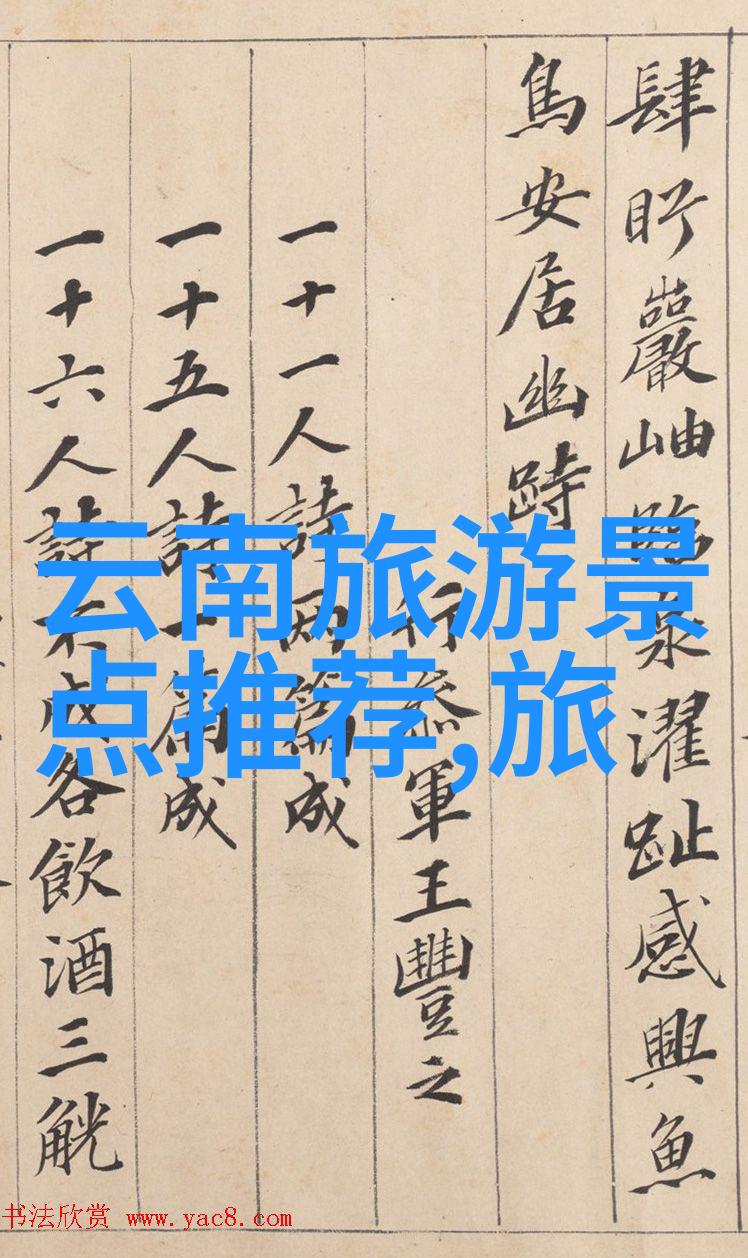 肆眄巖岫臨泉濯趾感興魚
鳥安居幽跱
行參軍王豐之
一十一人詩兩篇成
一十五人詩一篇成
一十六人詩不成各飲酒三觥
云南旅游景
点推荐,旅
书法欣赏 www.yac8.com